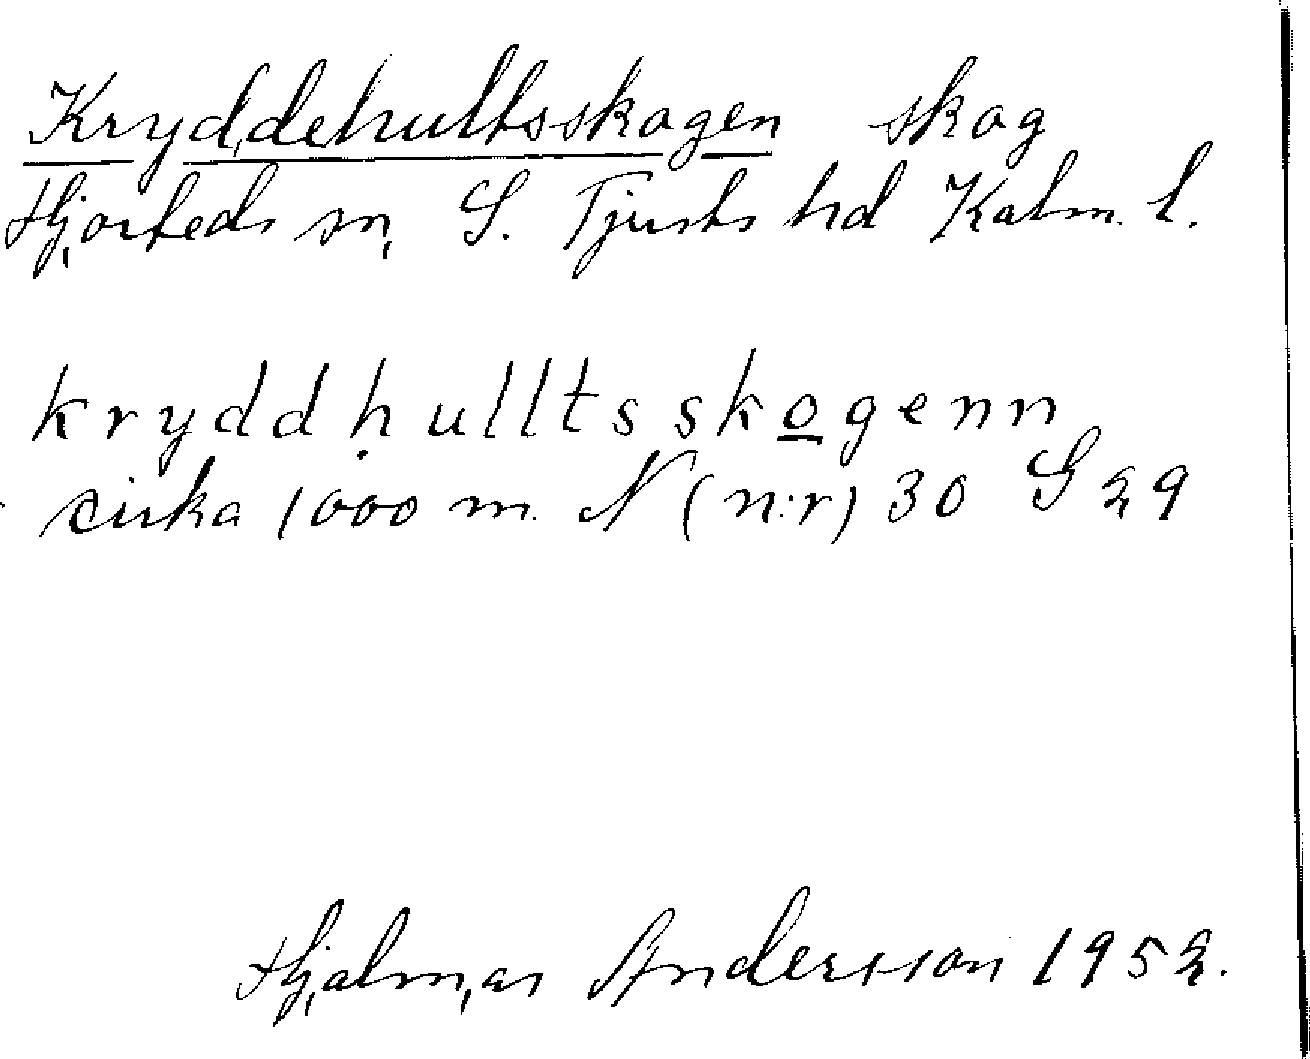 Kryddehultsskogen skog
Hjorteds sn, S. Tjusts hd Kalm. l.
kryddhulltsskogenn
cirka 1000 m. N (n:r) 30 G 29
Hjalmar Andersson 1952.